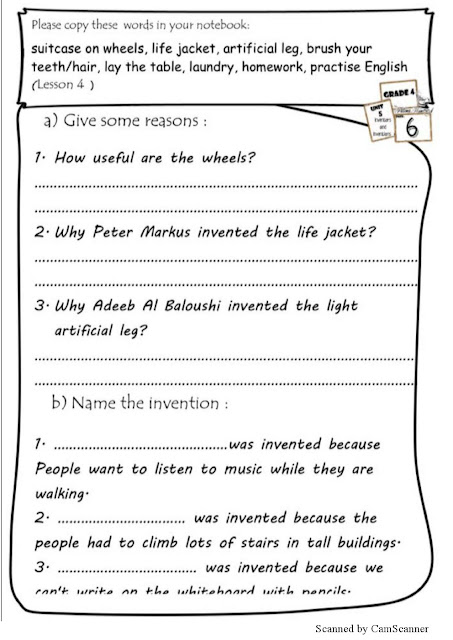 Please copy these words in your notebook:
suitcase on wheels, life jacket, artificial leg, brush your
teeth/hair, lay the table, laundry, homework, practise English
(Lesson 4 )
GRADE 4
UNIT
5
Inventors
and
Inventions
6
a) Give some reasons :
1. How useful are the wheels?
2. Why Peter Markus invented the life jacket?
3. Why Adeeb Al Baloushi invented the light
artificial leg?
b) Name the invention :
1. ...........................................was invented because
People want to listen to music while they are
walking.
2. ................................ was invented because the
people had to climb lots of stairs in tall buildings.
3. ................................... was invented because we
can't write on the whiteboard with pencils.
Scanned by CamScanner